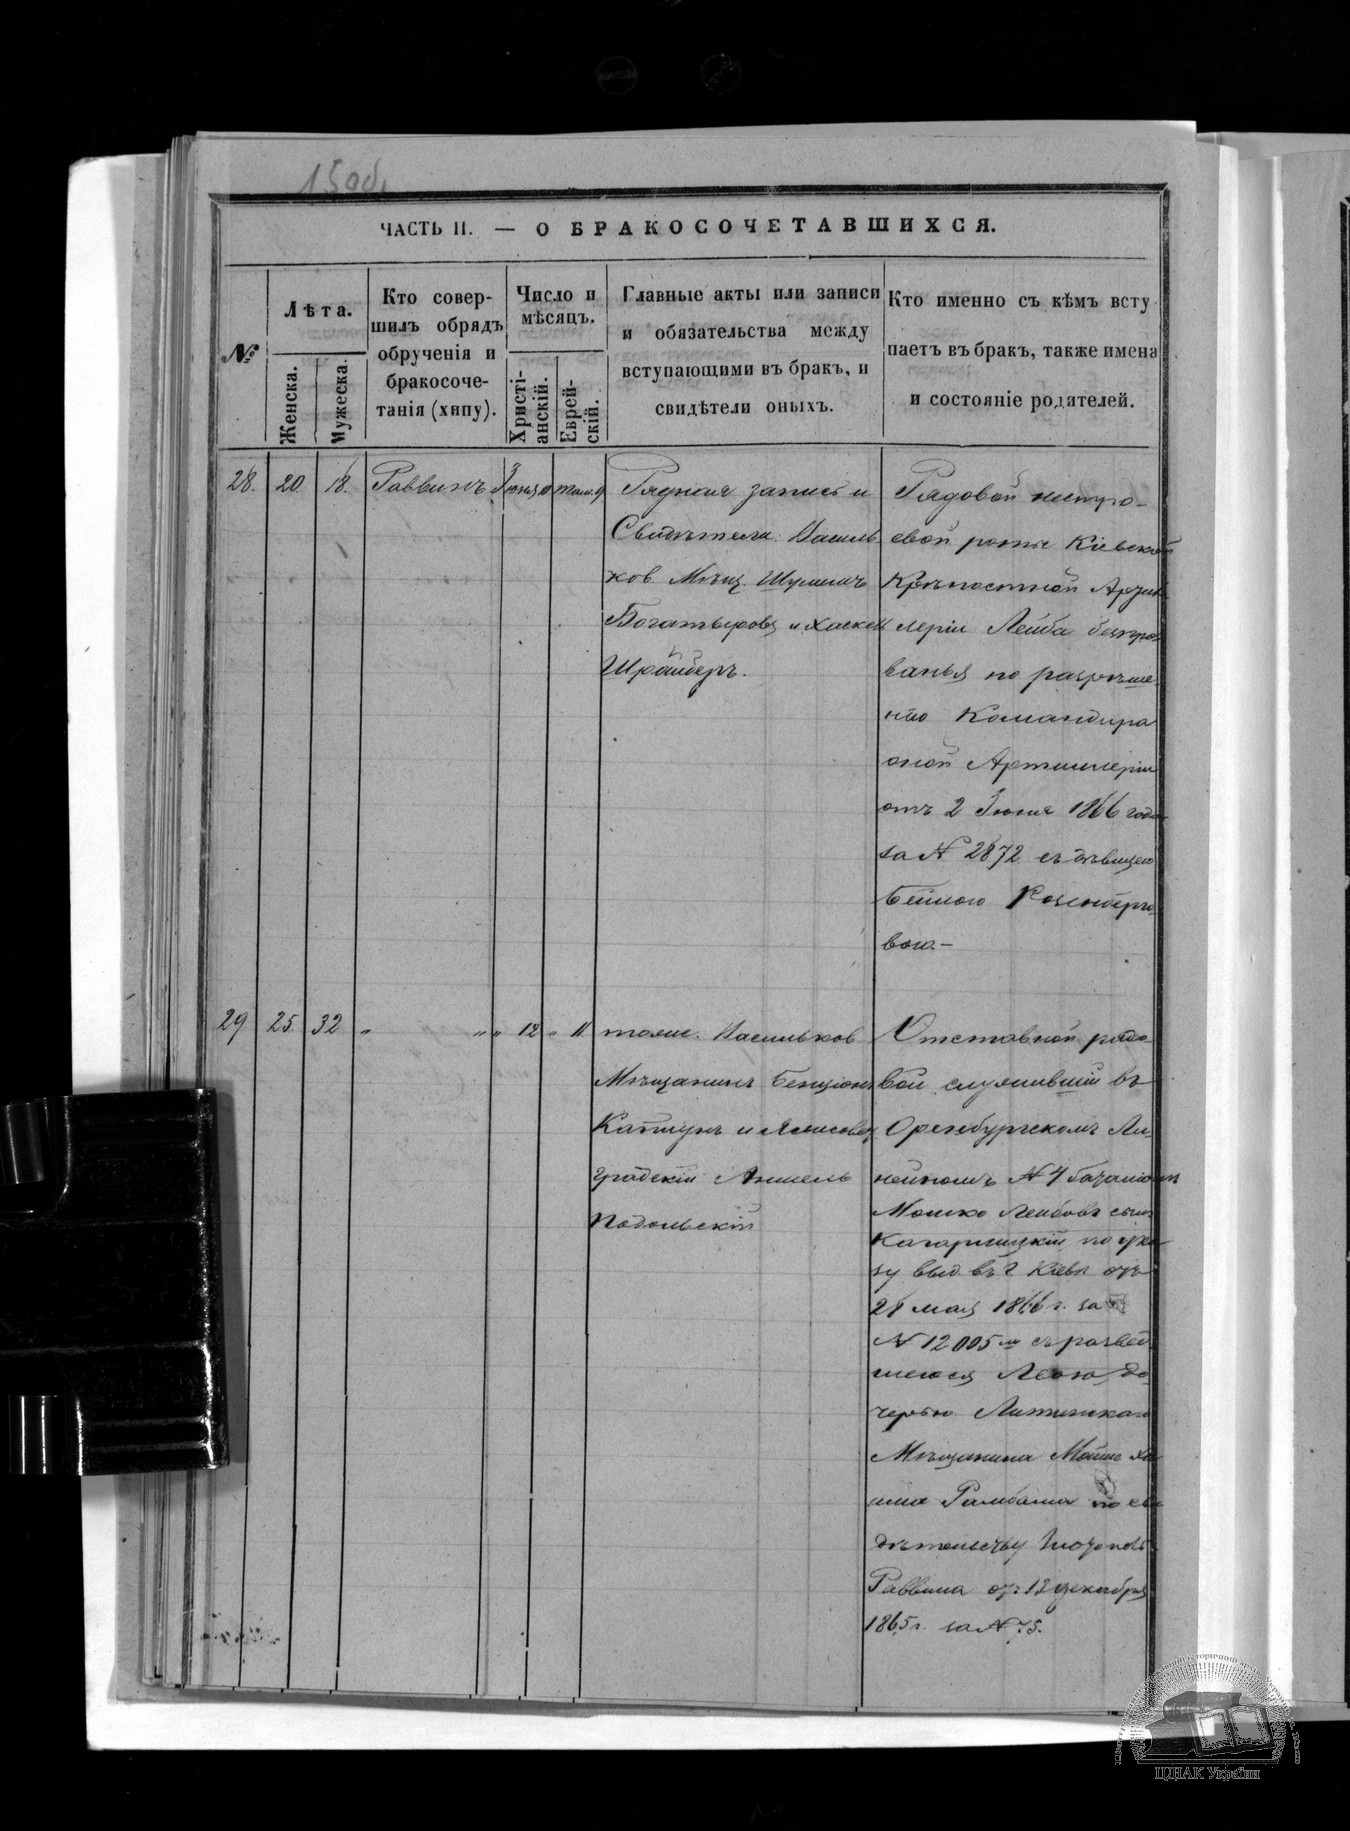 150об.
ЧАСТЬ II. — О БРАКОСОЧЕТАВШИХСЯ.
№
Лѣта.
Женска.
Мужеска.
Кто совер-
шилъ обрядъ
обрученія и
бракосоче-
танія (хипу).
Число и
мѣсяцъ.
Христі-
анскій.
Еврей-
скій.
Главные акты или записи
и обязательства между
вступающими въ бракъ, и
свидѣтели оныхъ.
Кто именно съ кѣмъ всту
паетъ въ бракъ, также имена
и состояніе родителей.
28. 20 18. Раввинъ Іюня 10 там. 9
Рядная запись и
Свидѣтели Васильков. Мѣщ. Шулимъ
Богатыровъ и Хаскел
Шрайберъ.
Рядовой нестро-
евой роты Кіевской
Крѣпостной Артил
леріи Лейба
ванья по разрѣше
нію Командира
оной Артиллеріи
отъ 2 Іюня 1866 года
за № 2872 съ дѣвицею
Бейлою Розенберго
вою.—
29 25 32 „ „ „ 12 „ 11
тоже. Васильков
Мѣщанинъ Бенціонъ
и Елисавет
градскій Аншель
Подольскій
Отставной рядо
вой служившій въ
Оренбургскомъ Ли
нейномъ № 4 баталіонѣ
Мошко Лейбовъ сынъ
Кагарлицкій по ука
зу выд. въ г. Кіевѣ отъ
21 мая 1866 г. за
№ 12005 съ развед
шеюся Леею до
черью Литинскаго
Мѣщанина Мойше Ха
има по сви
дѣтельству
Раввина отъ 12 декабря
1865 г. за № 75.
ЦДІАК України